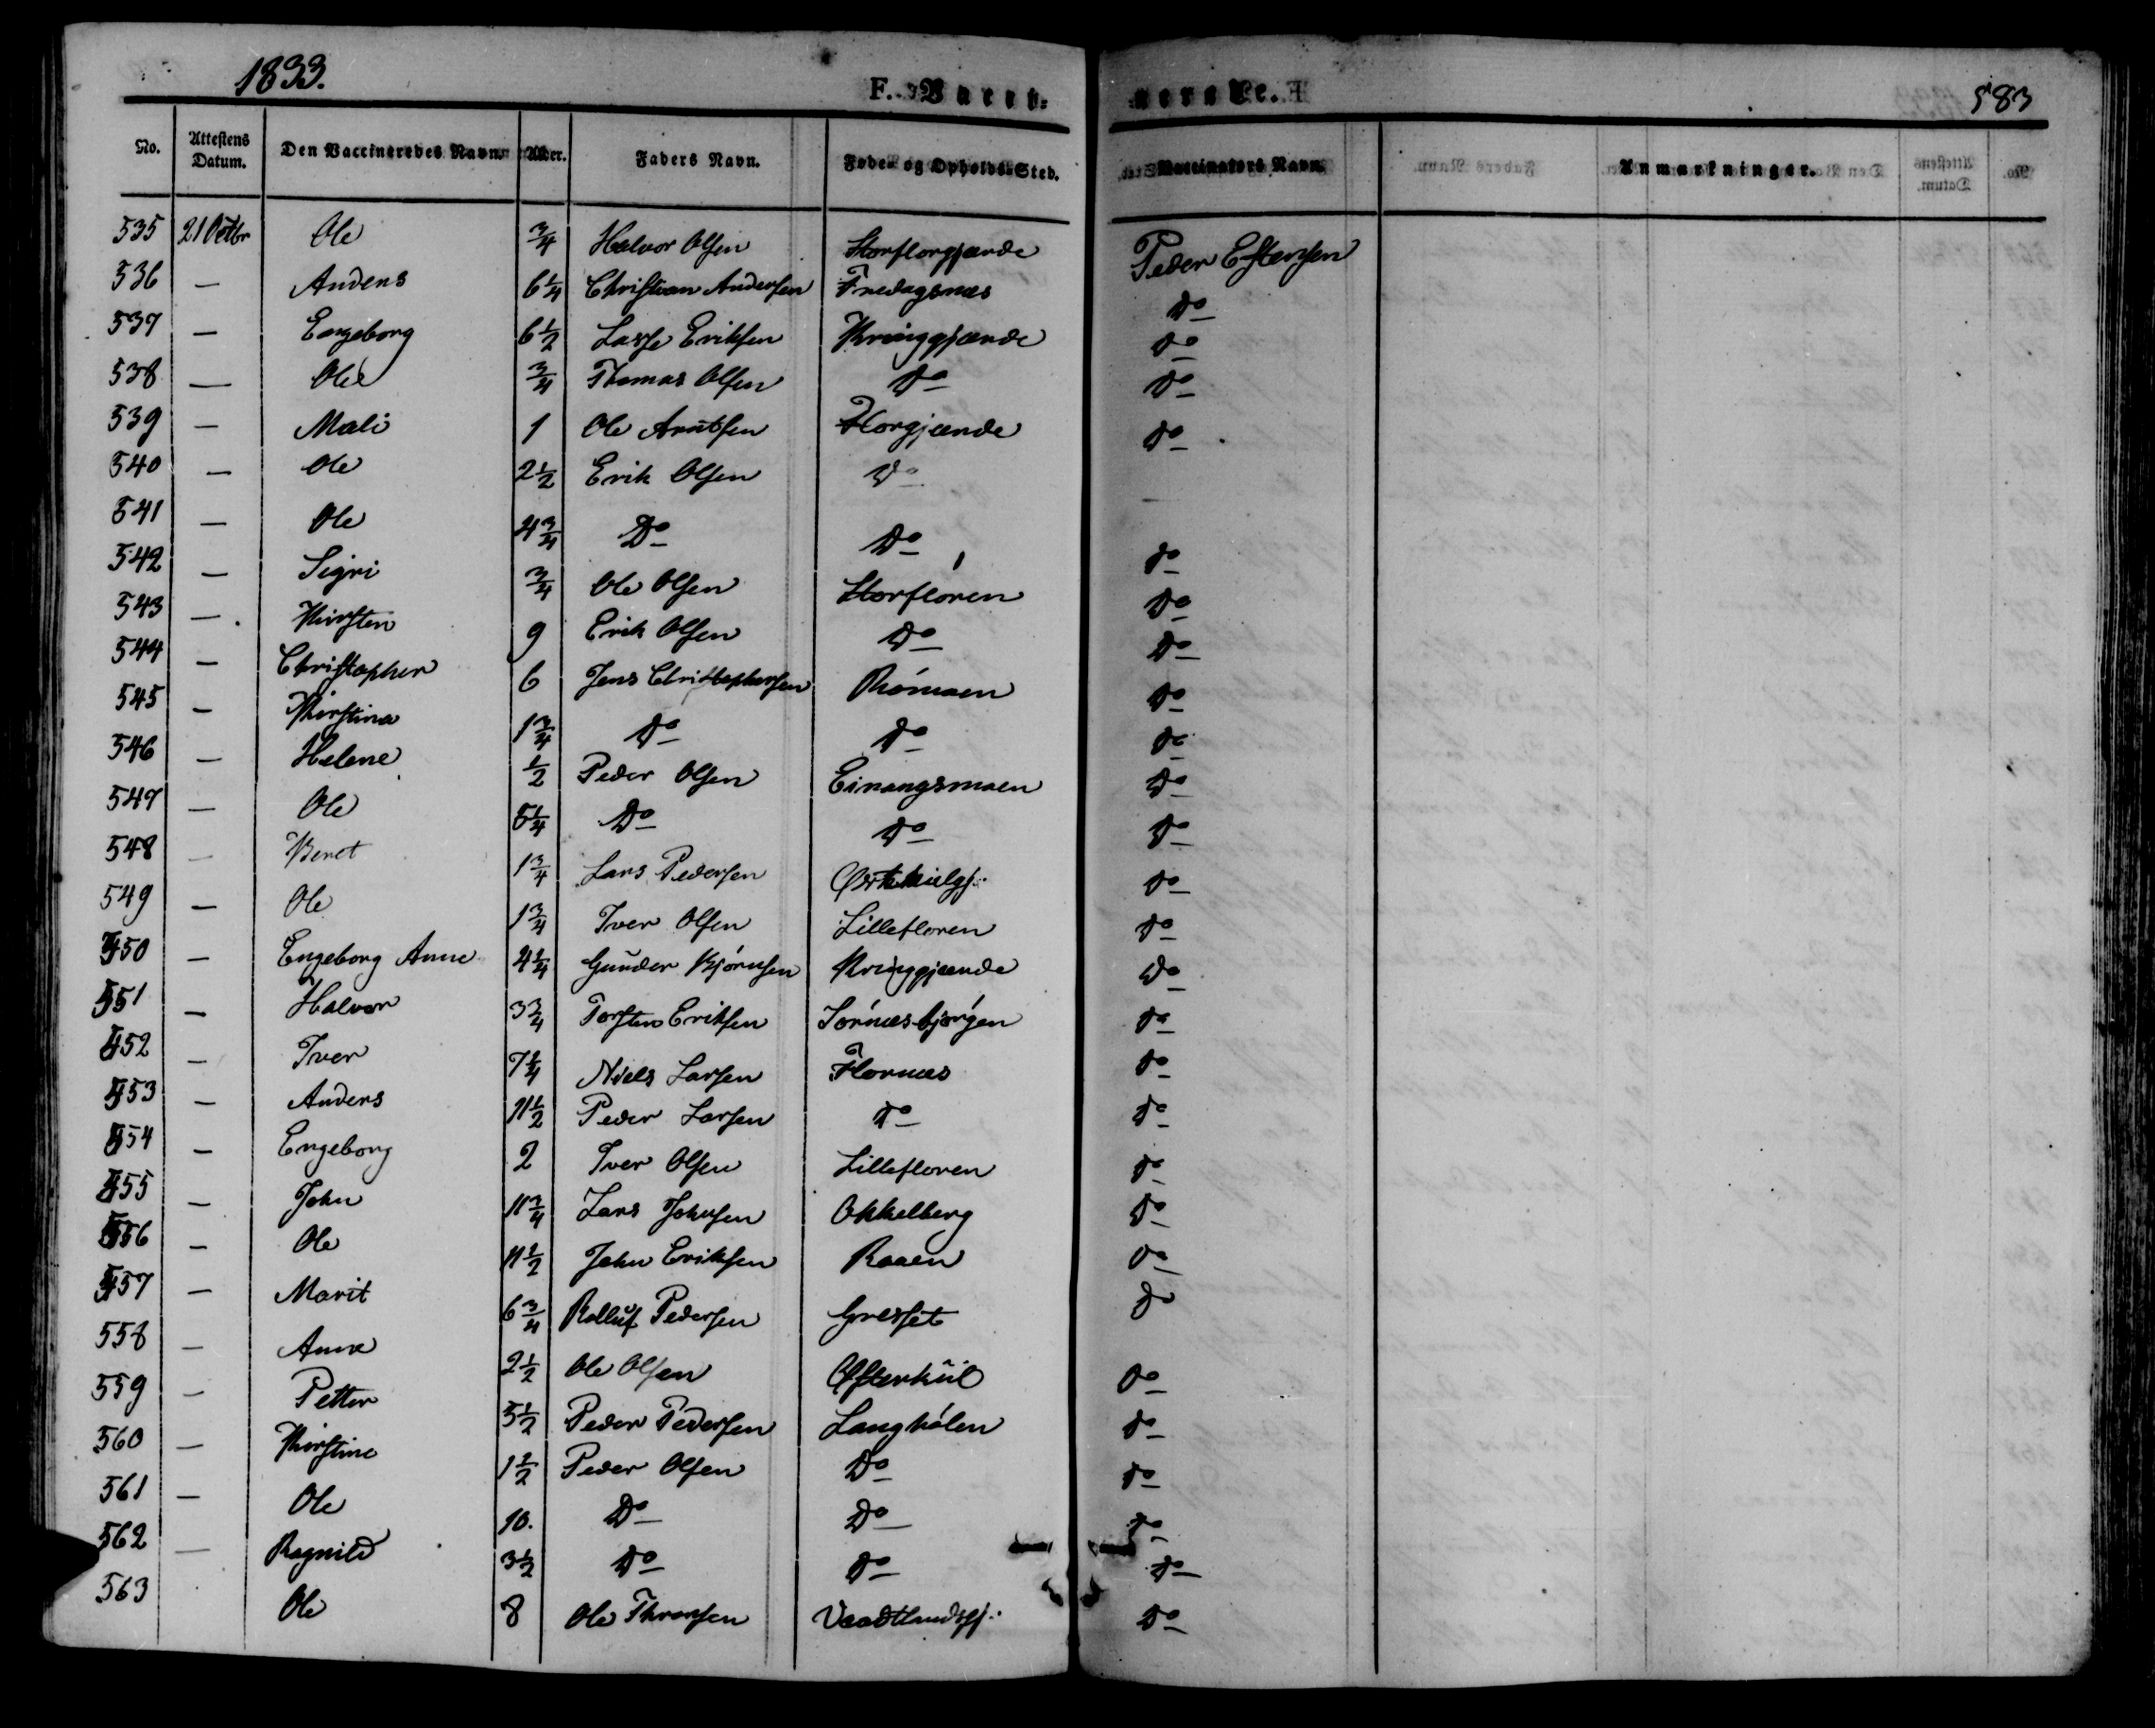 1833.
F. Vacci-
nerede.
583
No. Attestens Datum. Den Vaccineredes Navn. Alder. Faders Navn. Føde- og Opholds-Sted. Vaccinators Navn. Anmærkninger.
535 21 Octbr Ole 3/4 Halvor Olsen Storflorgjærde Peder Estensen
536 — Anders 6 1/4 Christian Andersen Fredagsnæs Do
537 — Engeborg 6 1/2 Lasse Eriksen Kringgjærde Do
538 — Ole 3/4 Thomas Olsen Do Do
539 — Mali 1 Ole Arntsen Florgjærde Do
540 — Ole 2 1/2 Erik Olsen Do
541 — Ole 4 3/4 Do Do Do
542 — Sigri 3/4 Ole Olsen Storfloren Do
543 — Kirsten 9 Erik Olsen Do Do
544 — Christopher 6 Jens Christophersen Rømoen Do
545 — Kirstina 1 3/4 Do Do Do
546 — Helene 1/2 Peder Olsen Einangsmoen Do
547 — Ole 5 1/4 Do Do Do
548 — Beret 1 3/4 Lars Pedersen Do
549 — Ole 1 3/4 Iver Olsen Lillefloren Do
550 — Engeborg Anne 4 1/4 Gunder Bjørnsen Kringgjærde Do
551 — Halvor 3 3/4 Torsten Eriksen Sørnæsbjørgen Do
552 — Iver 7 1/4 Niels Larsen Flornæs Do
553 — Anders 11 1/2 Peder Larsen Do Do
554 — Engeborg 2 Iver Olsen Lillefloren Do
555 — John 11 3/4 Lars Johnsen Okkelberg Do
556 — Ole 11 1/2 John Eriksen Raaen Do
557 — Marit 6 3/4 Rolluf Pedersen Gresset Do
558 — Anne 2 1/2 Ole Olsen Østerkiil Do
559 — Petter 5 1/2 Peder Pedersen Langhølen Do
560 — Kirstine 1 1/2 Peder Olsen Do Do
561 — Ole 10. Do Do Do
562 — Ragnild 3 1/2 Do Do Do
563 Ole 8 Ole Thronsen Vaadtlandsgj. Do